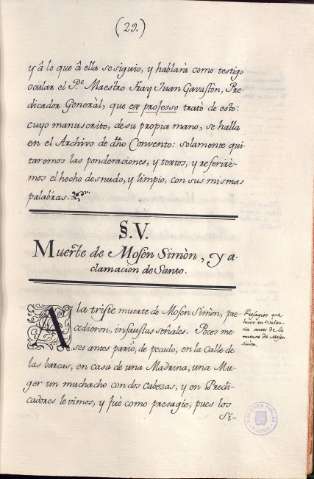 (29.)
y à lo que à ella se siguio, y hablarà como testigo
ocular el P.e Maestro Fray Juan Gavastòn, Pre-
dicador Generàl, que ex professo tratò de esto:
cuyo manuscrito, de su propia mano, se halla
en el Archivo de dho Convento: solamente qui-
taremos las ponderaciones, y textos, y referirè-
mos el hecho desnudo, y limpio, con sus mismas
palabras.
§. V.
Muerte de Mosèn Simòn, y a-
clamacion de Santo.
A la triste muerte de Mosèn Simòn, pre-
cedieron, infaustas señales. Pocos me-
ses antes pariò, de pecado, en la calle de
las barcas, en casa de una Madrina, una Mu-
ger un muchacho con dos cabezas, y en Predi-
cadores le vimos, y fuè como presagio, pues los
Presagios que
huvo en Valen-
cia antes de la
muerte de Mosèn
Simòn.